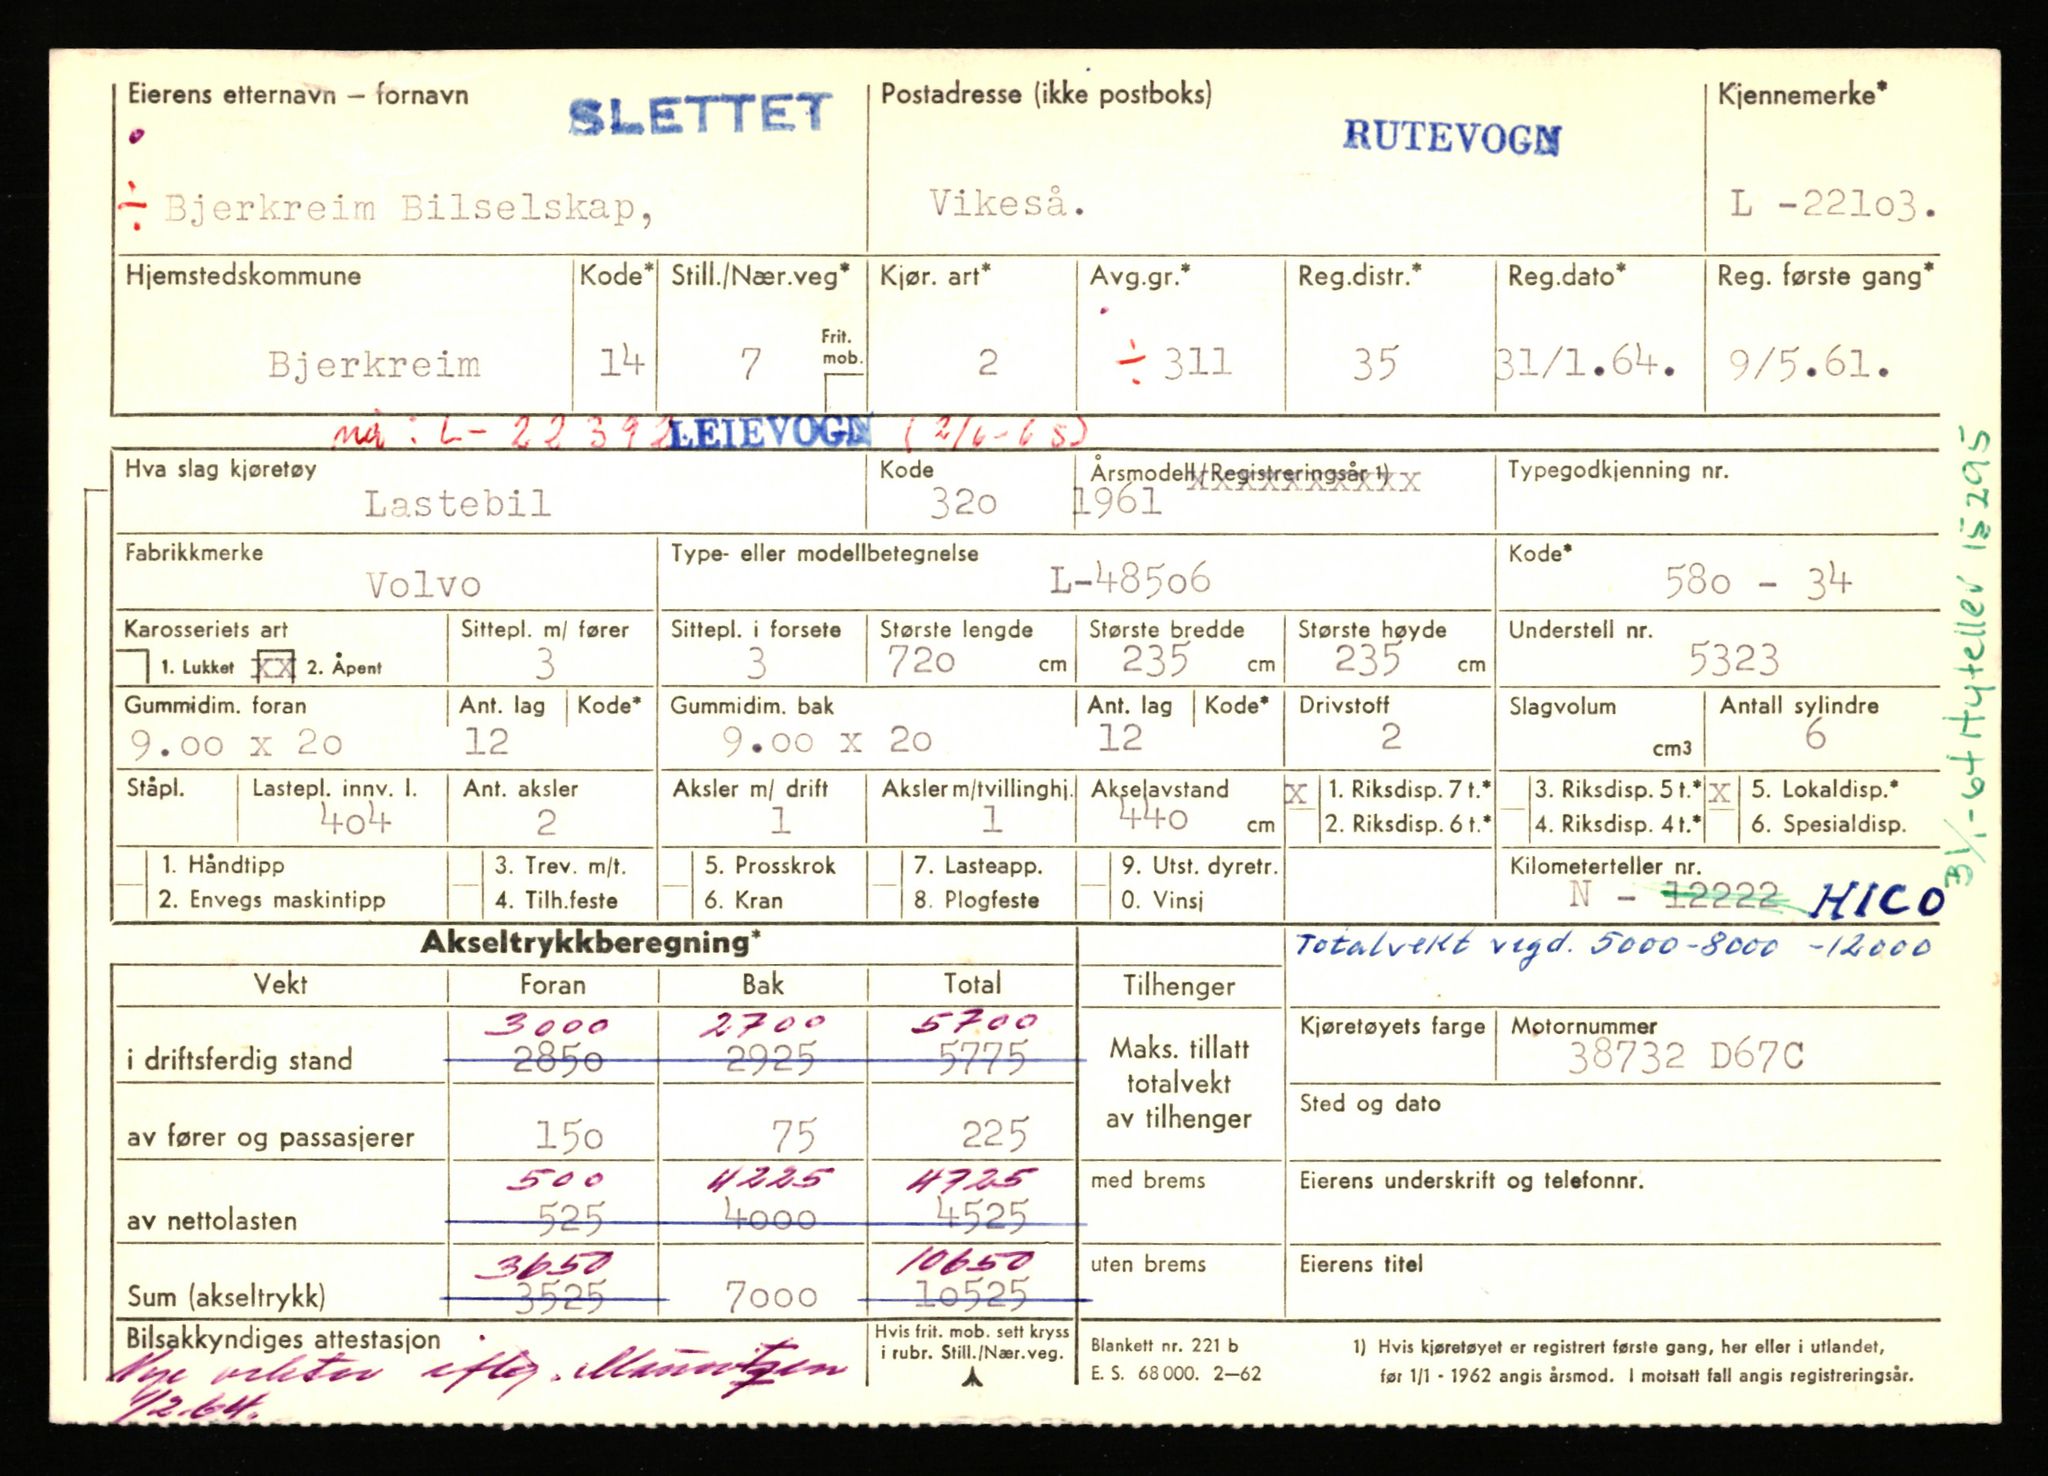 Eierens etternavn – fornavn SLETTET Postadresse (ikke postboks) RUTEVOGN Kjennemerke*
÷ Bjerkreim Bilselskap, Vikeså. L -22103.
Hjemstedskommune Kode* Still./Nær.veg* Kjør. art* Avg.gr.* Reg.distr.* Reg.dato* Reg. første gang*
Frit. mob.
Bjerkreim 14 7 2 ÷ 311 35 31/1.64. 9/5.61.
nå: L- 22392 LEIEVOGN (2/6-65)
Hva slag kjøretøy Kode Årsmodell/Registreringsår 1) Typegodkjenning nr.
Lastebil 320 1961 xxxxxxxxxx
Fabrikkmerke Type- eller modellbetegnelse Kode*
Volvo L-48506 580 - 34
Karosseriets art Sittepl. m/ fører Sittepl. i forsete Største lengde Største bredde Største høyde Understell nr.
1. Lukket xx 2. Åpent 3 3 720 cm 235 cm 235 cm 5323
Gummidim. foran Ant. lag Kode* Gummidim. bak Ant. lag Kode* Drivstoff Slagvolum Antall sylindre
9.00 x 20 12 9.00 x 20 12 2 cm3 6
Ståpl. Lastepl. innv. l. Ant. aksler Aksler m/ drift Aksler m/tvillinghj. Akselavstand x 1. Riksdisp. 7 t.* 3. Riksdisp. 5 t.* x 5. Lokaldisp.*
404 2 1 1 440 cm 2. Riksdisp. 6 t.* 4. Riksdisp. 4 t.* 6. Spesialdisp.
1. Håndtipp 3. Trev. m/t. 5. Prosskrok 7. Lasteapp. 9. Utst. dyretr. Kilometerteller nr.
2. Envegs maskintipp 4. Tilh.feste 6. Kran 8. Plogfeste 0. Vinsj N - 12222 HICO
-64 Hyteller 15295
Akseltrykkberegning* Totalvekt vegd. 5000-8000 -12000
Vekt Foran Bak Total Tilhenger
3000 2700 5700 Kjøretøyets farge Motornummer
i driftsferdig stand 2850 2925 5775 Maks. tillatt totalvekt av tilhenger 38732 D67C
Sted og dato
av fører og passasjerer 150 75 225
500 4225 4725 med brems Eierens underskrift og telefonnr.
av nettolasten 525 4000 4525
3650 10650 uten brems Eierens titel
Sum (akseltrykk) 3525 7000 10525
Bilsakkyndiges attestasjon Hvis frit. mob. sett kryss i rubr. Still./Nær.veg. Blankett nr. 221 b 1) Hvis kjøretøyet er registrert første gang, her eller i utlandet,
E. S. 68 000. 2–62 før 1/1 - 1962 angis årsmod. I motsatt fall angis registreringsår.
Nye vekter iflg.
1/2.64.